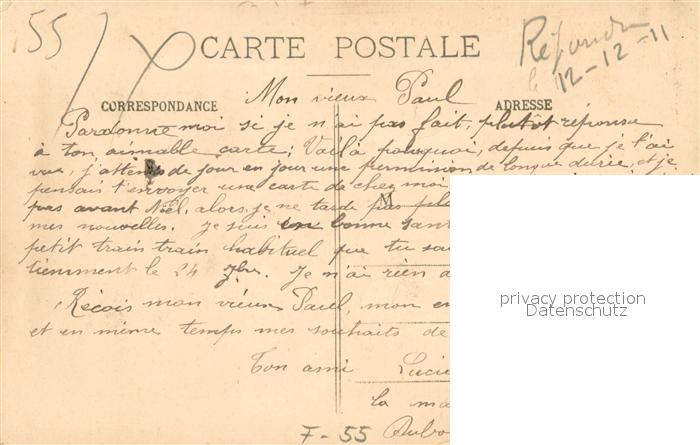 55
CARTE POSTALE
Répondu
le 12-12-11
CORRESPONDANCE
ADRESSE
Mon vieux Paul
Pardonne moi si je n'ai pas fait, plutot réponse
à ton aimable carte; Voilà pourquoi, depuis que je t'ai
vu, j'attends de jour en jour une permission de longue durée, et je
pensais t'envoyer une carte de chez moi
pas avant Noël, alors je ne tarde pas
M
mes nouvelles. Je suis en bonne sant
petit train train habituel que tu
le 24 Je n'ai rien
Reçois mon vieux Paul, mon
et en même temps mes souhaits de
Ton ami Lucie
la ma
7-55
privacy protection
Datenschutz